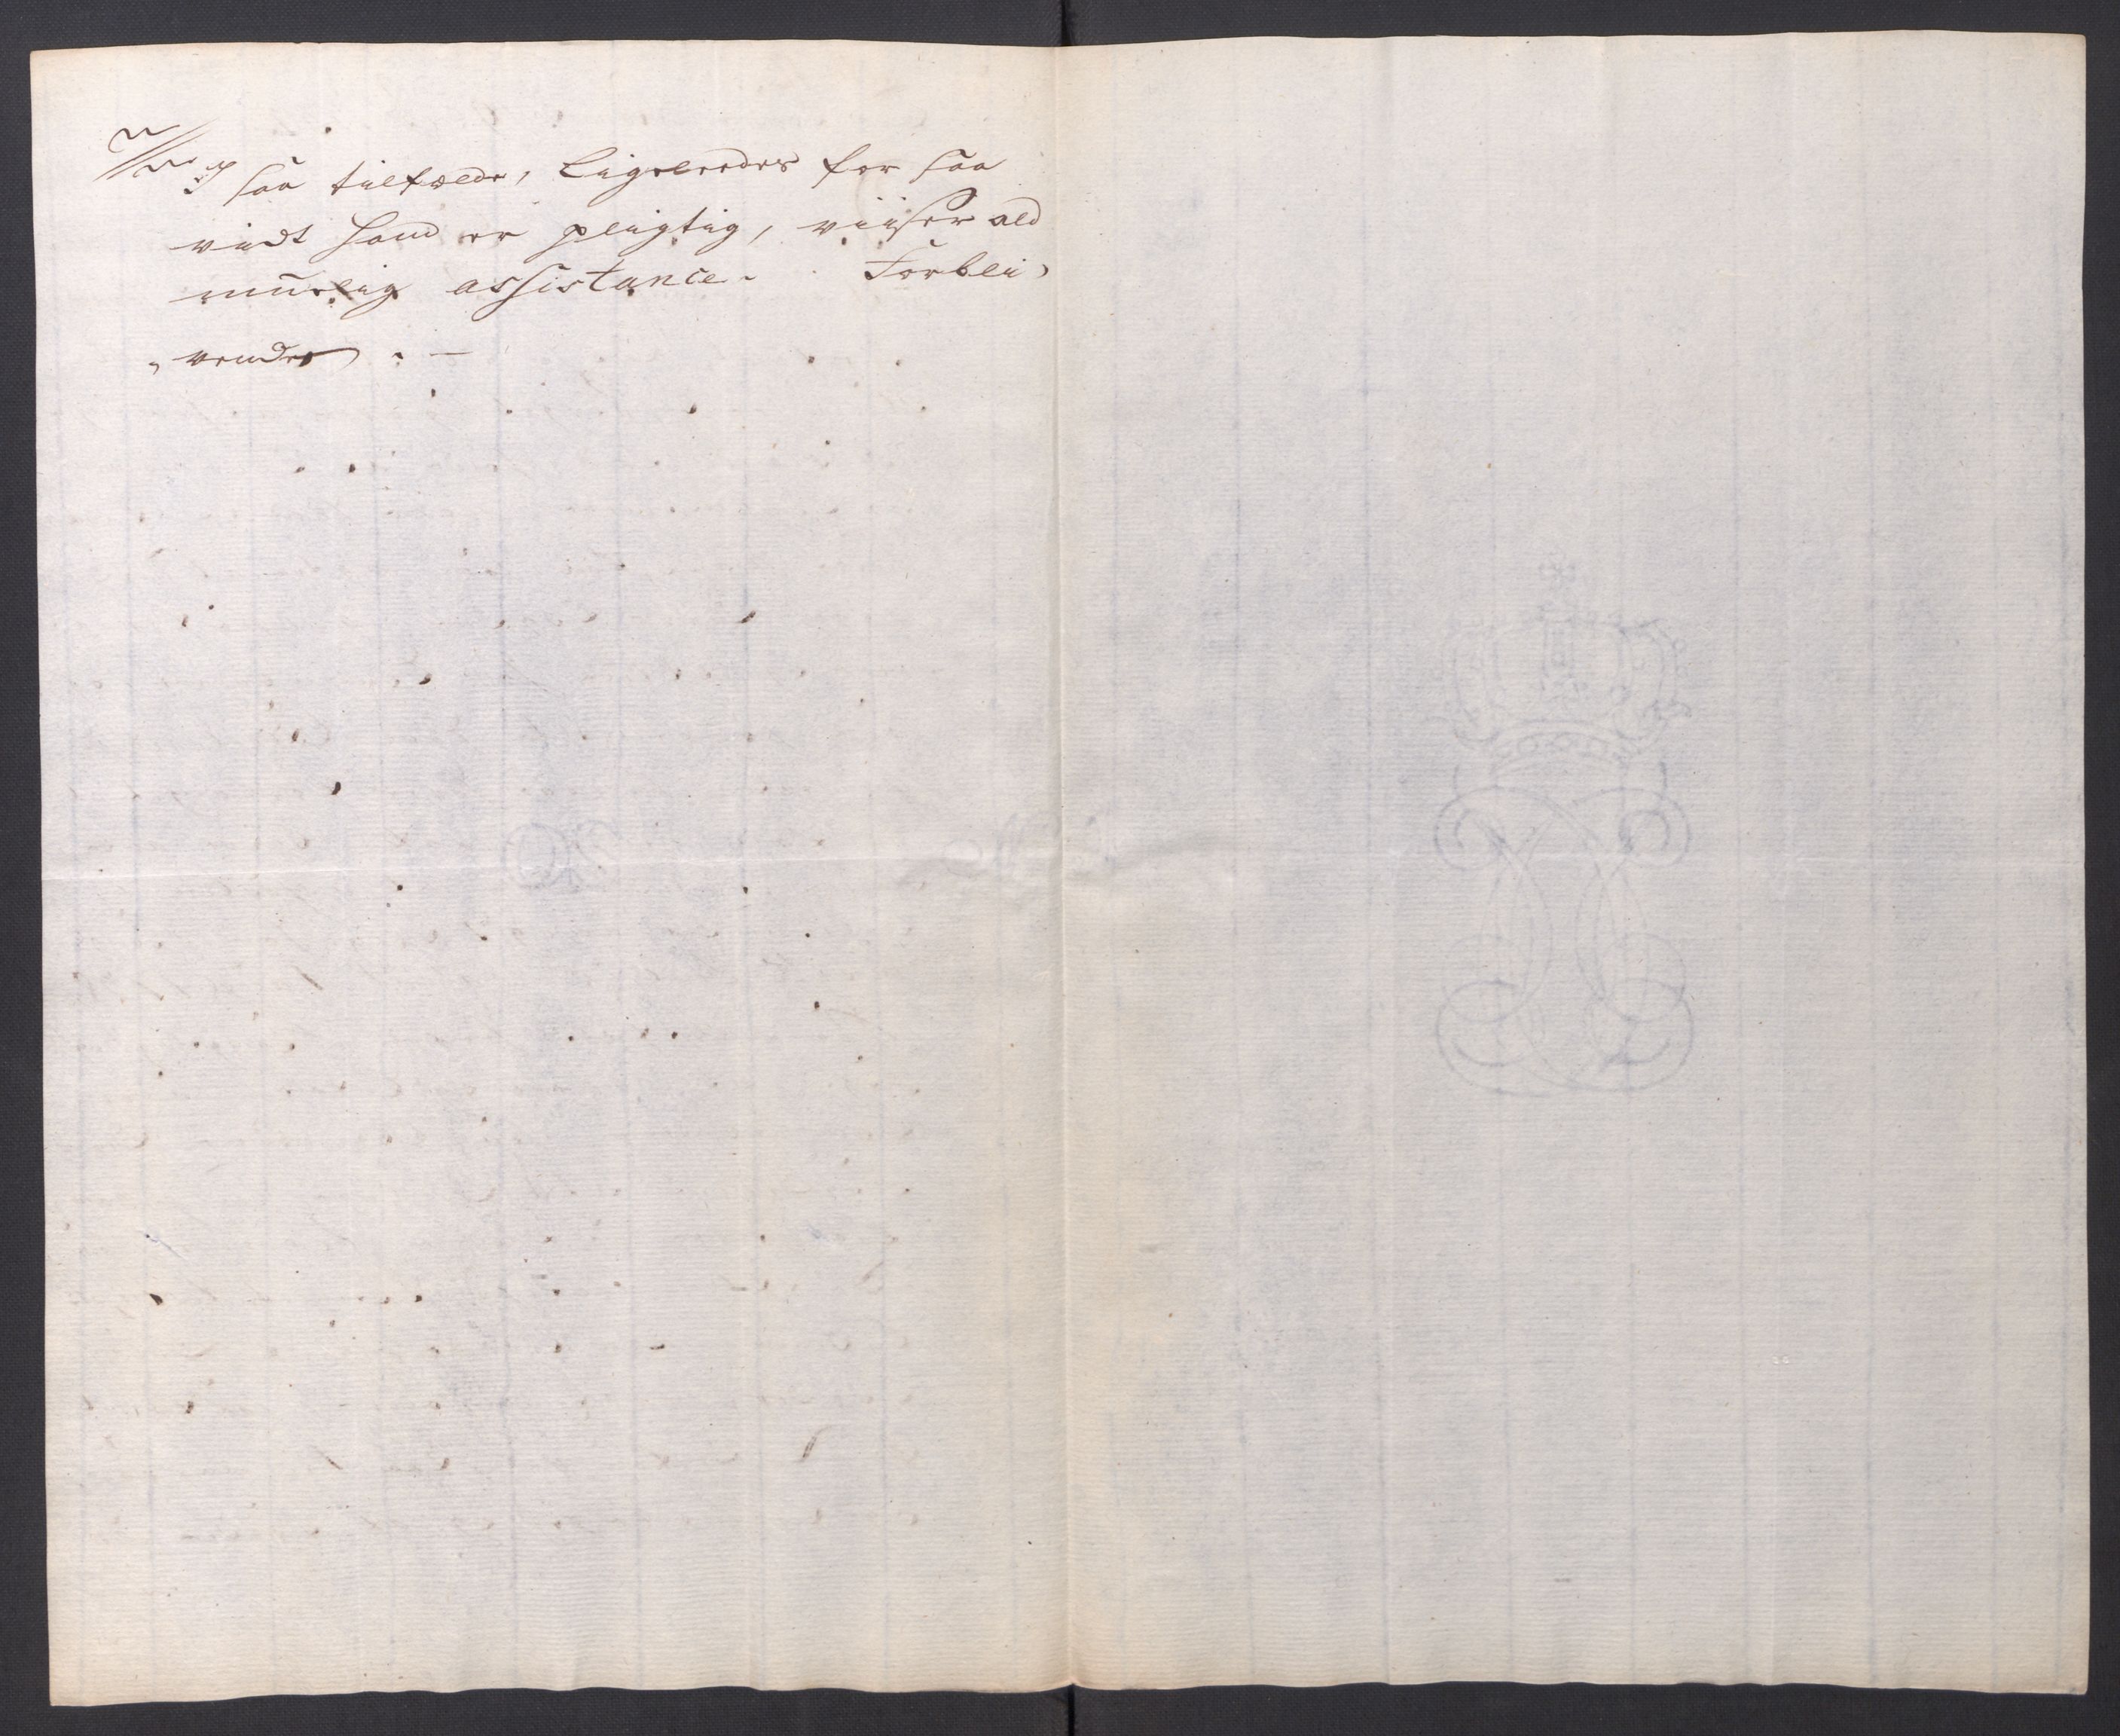 I saa tilfælde, Ligeleedes for saa
viidt hand er pligtig, viiser ald
mueliig assistance. Forbli-
vende. -